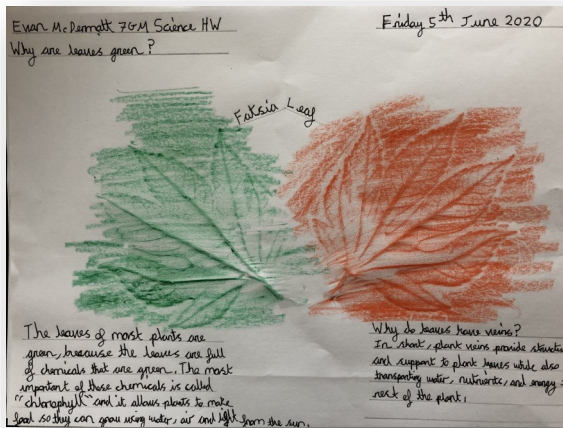 Evan McDermott 7GM Science HW
Friday 5th June 2020
Why are leaves green?
Fatsia Leaf
The leaves of most plants are
green, because the leaves are full
of chemicals that are green. The most
important of these chemicals is called
"chlorophyll" and it allows plants to make
food so they can grow using water, air and light from the sun.
Why do leaves have veins?
In short, plant veins provide
and support to plant leaves while also
transporting water, nutrients, and energy
rest of the plant.